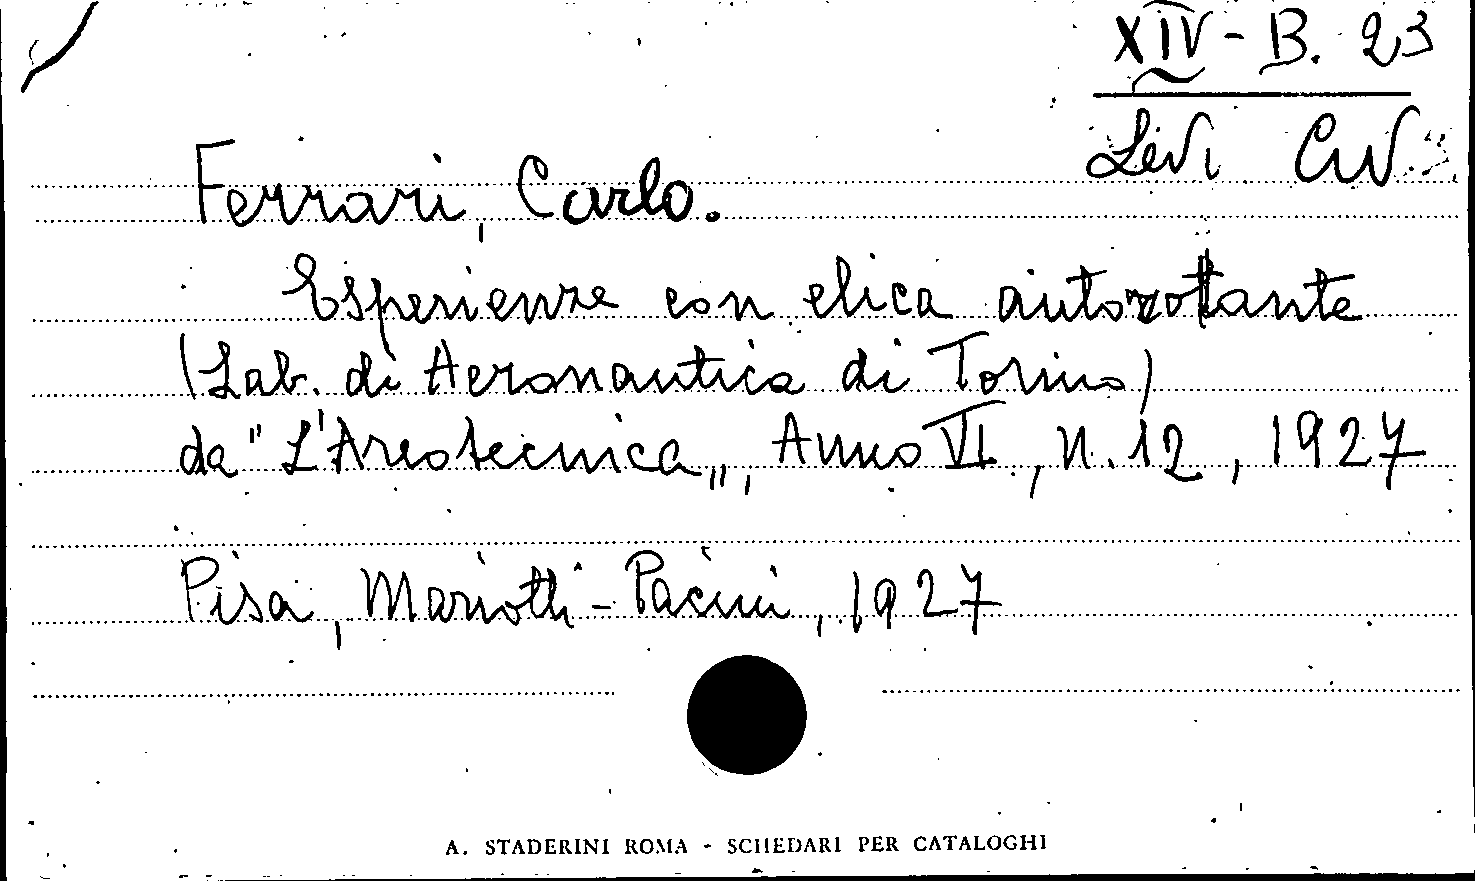 XIV - B. 23
Levi Civ.
Ferrari, Carlo.
Esperienze con elica autorotante
(Lab. di Aeronautica di Torino)
da "L'Areotecnica„, Anno VI, n. 12, 1927
Pisa, Mariotti - Pacini, 1927
A. STADERINI ROMA - SCHEDARI PER CATALOGHI